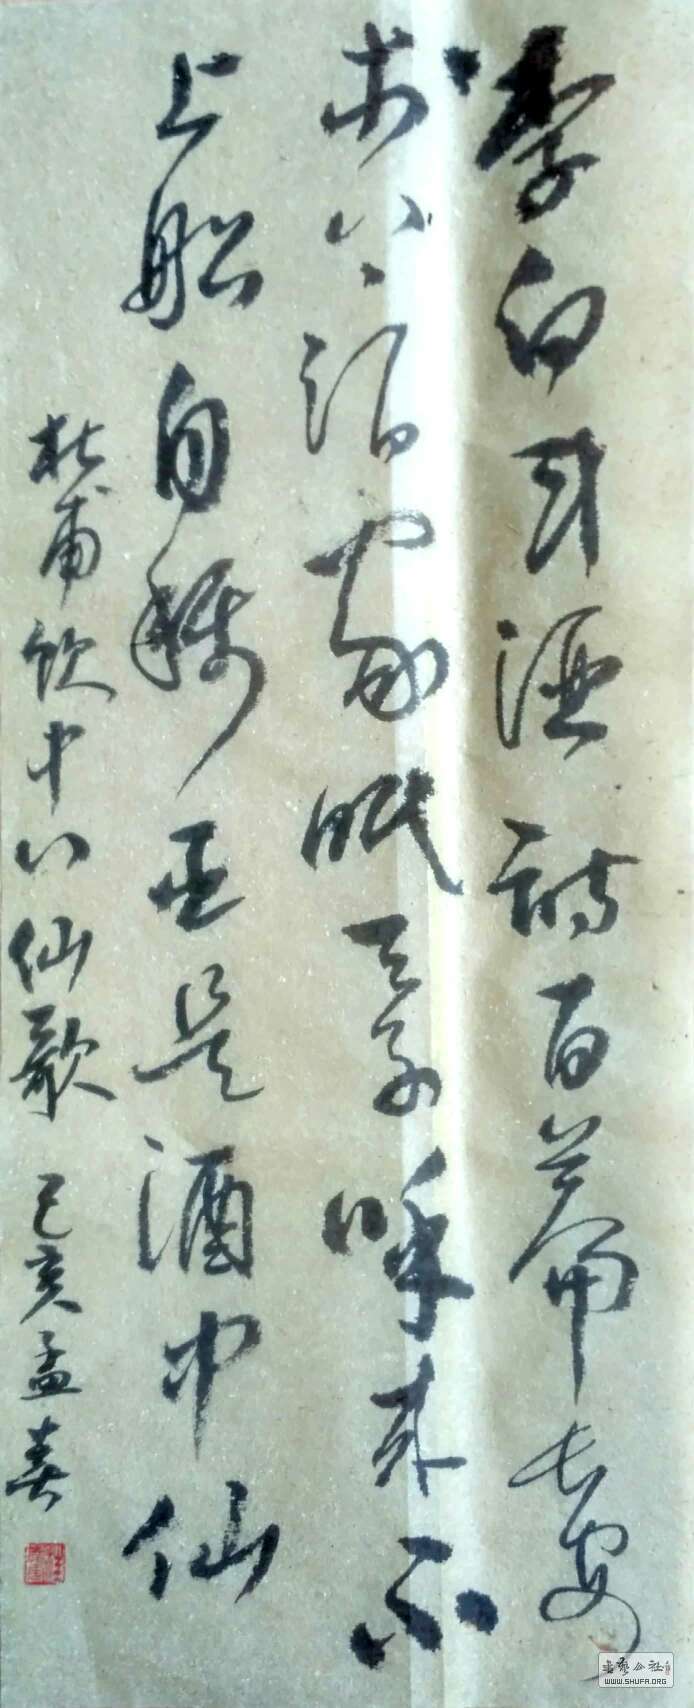 李白斗酒诗百篇长安
市上酒家眠天子呼来不
上船自称臣是酒中仙
杜甫饮中八仙歌 己亥孟春
书艺公社
WWW.SHUFA.ORG